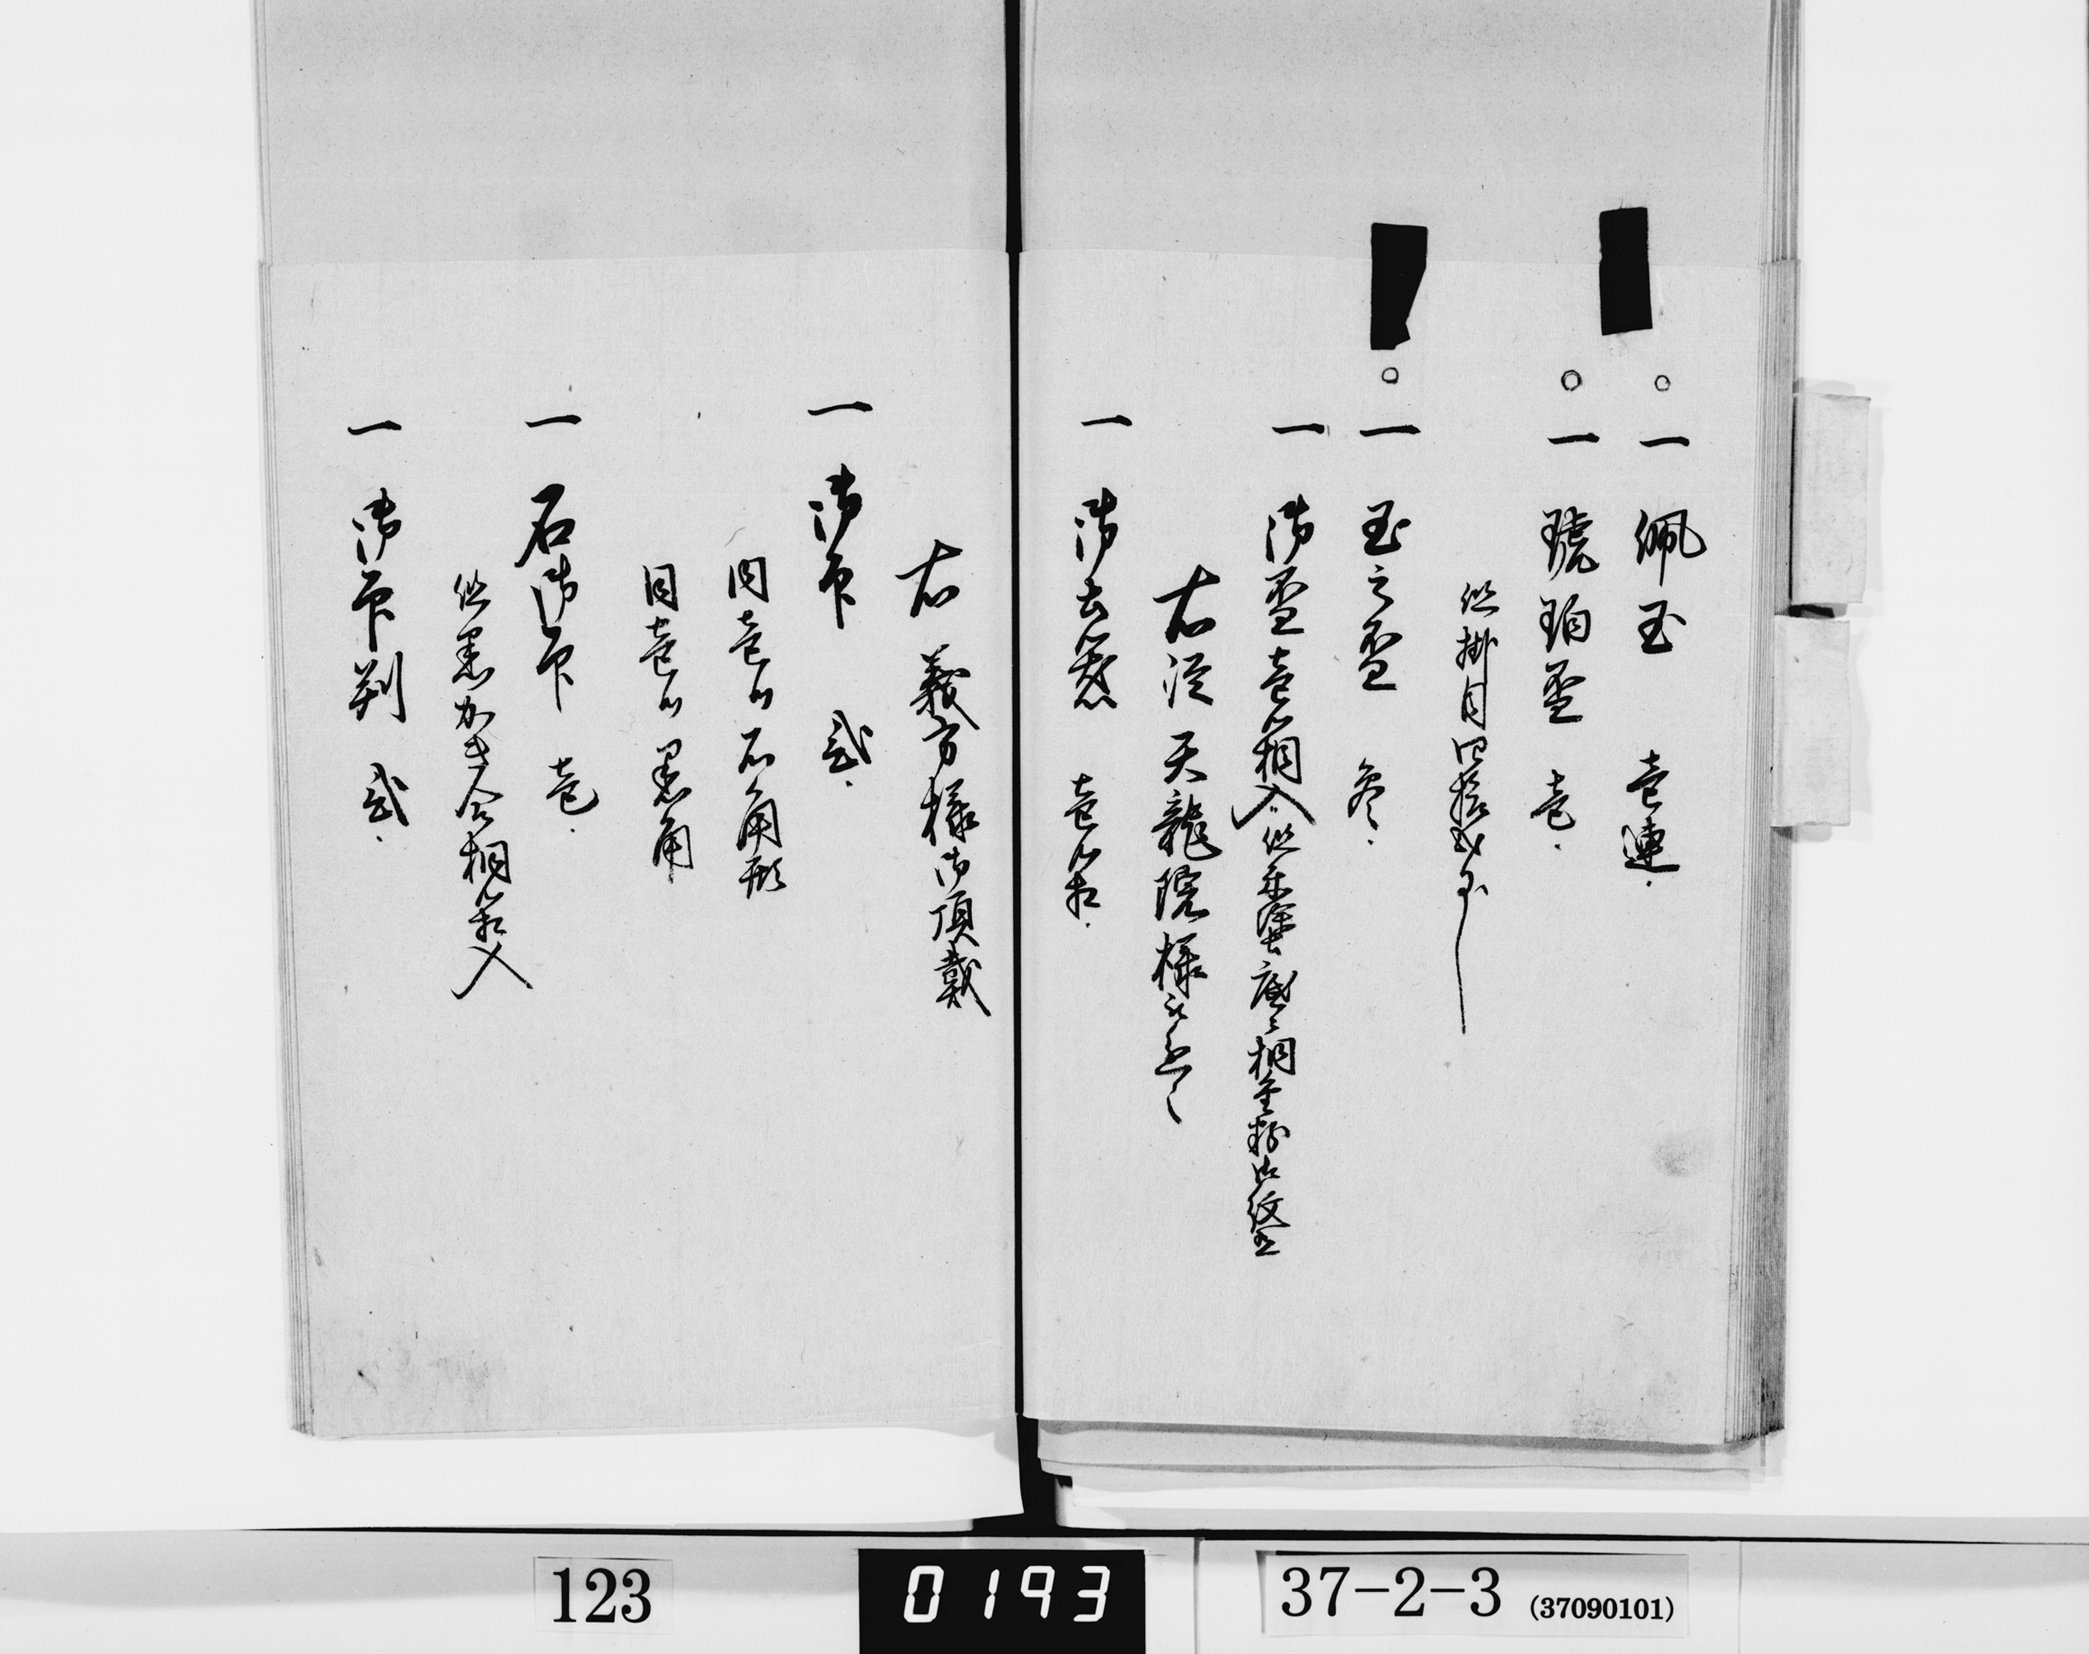 ○一 佩玉 壱連
○一 琥珀盃 壱
但掛目四拾弐匁
○一 玉之盃 参
一 御盃壱箱相入但朱塗底ニ桐金粉御紋
右従 天龍院様
一 御古裳 壱箱
右 義方様御頂戴
一 御印 弐
内壱ツ石角形
同壱ツ黒角
一 石御印 壱
但墨かき合桐箱入
一 御印判 弐
123
0193
37-2-3 (37090101)